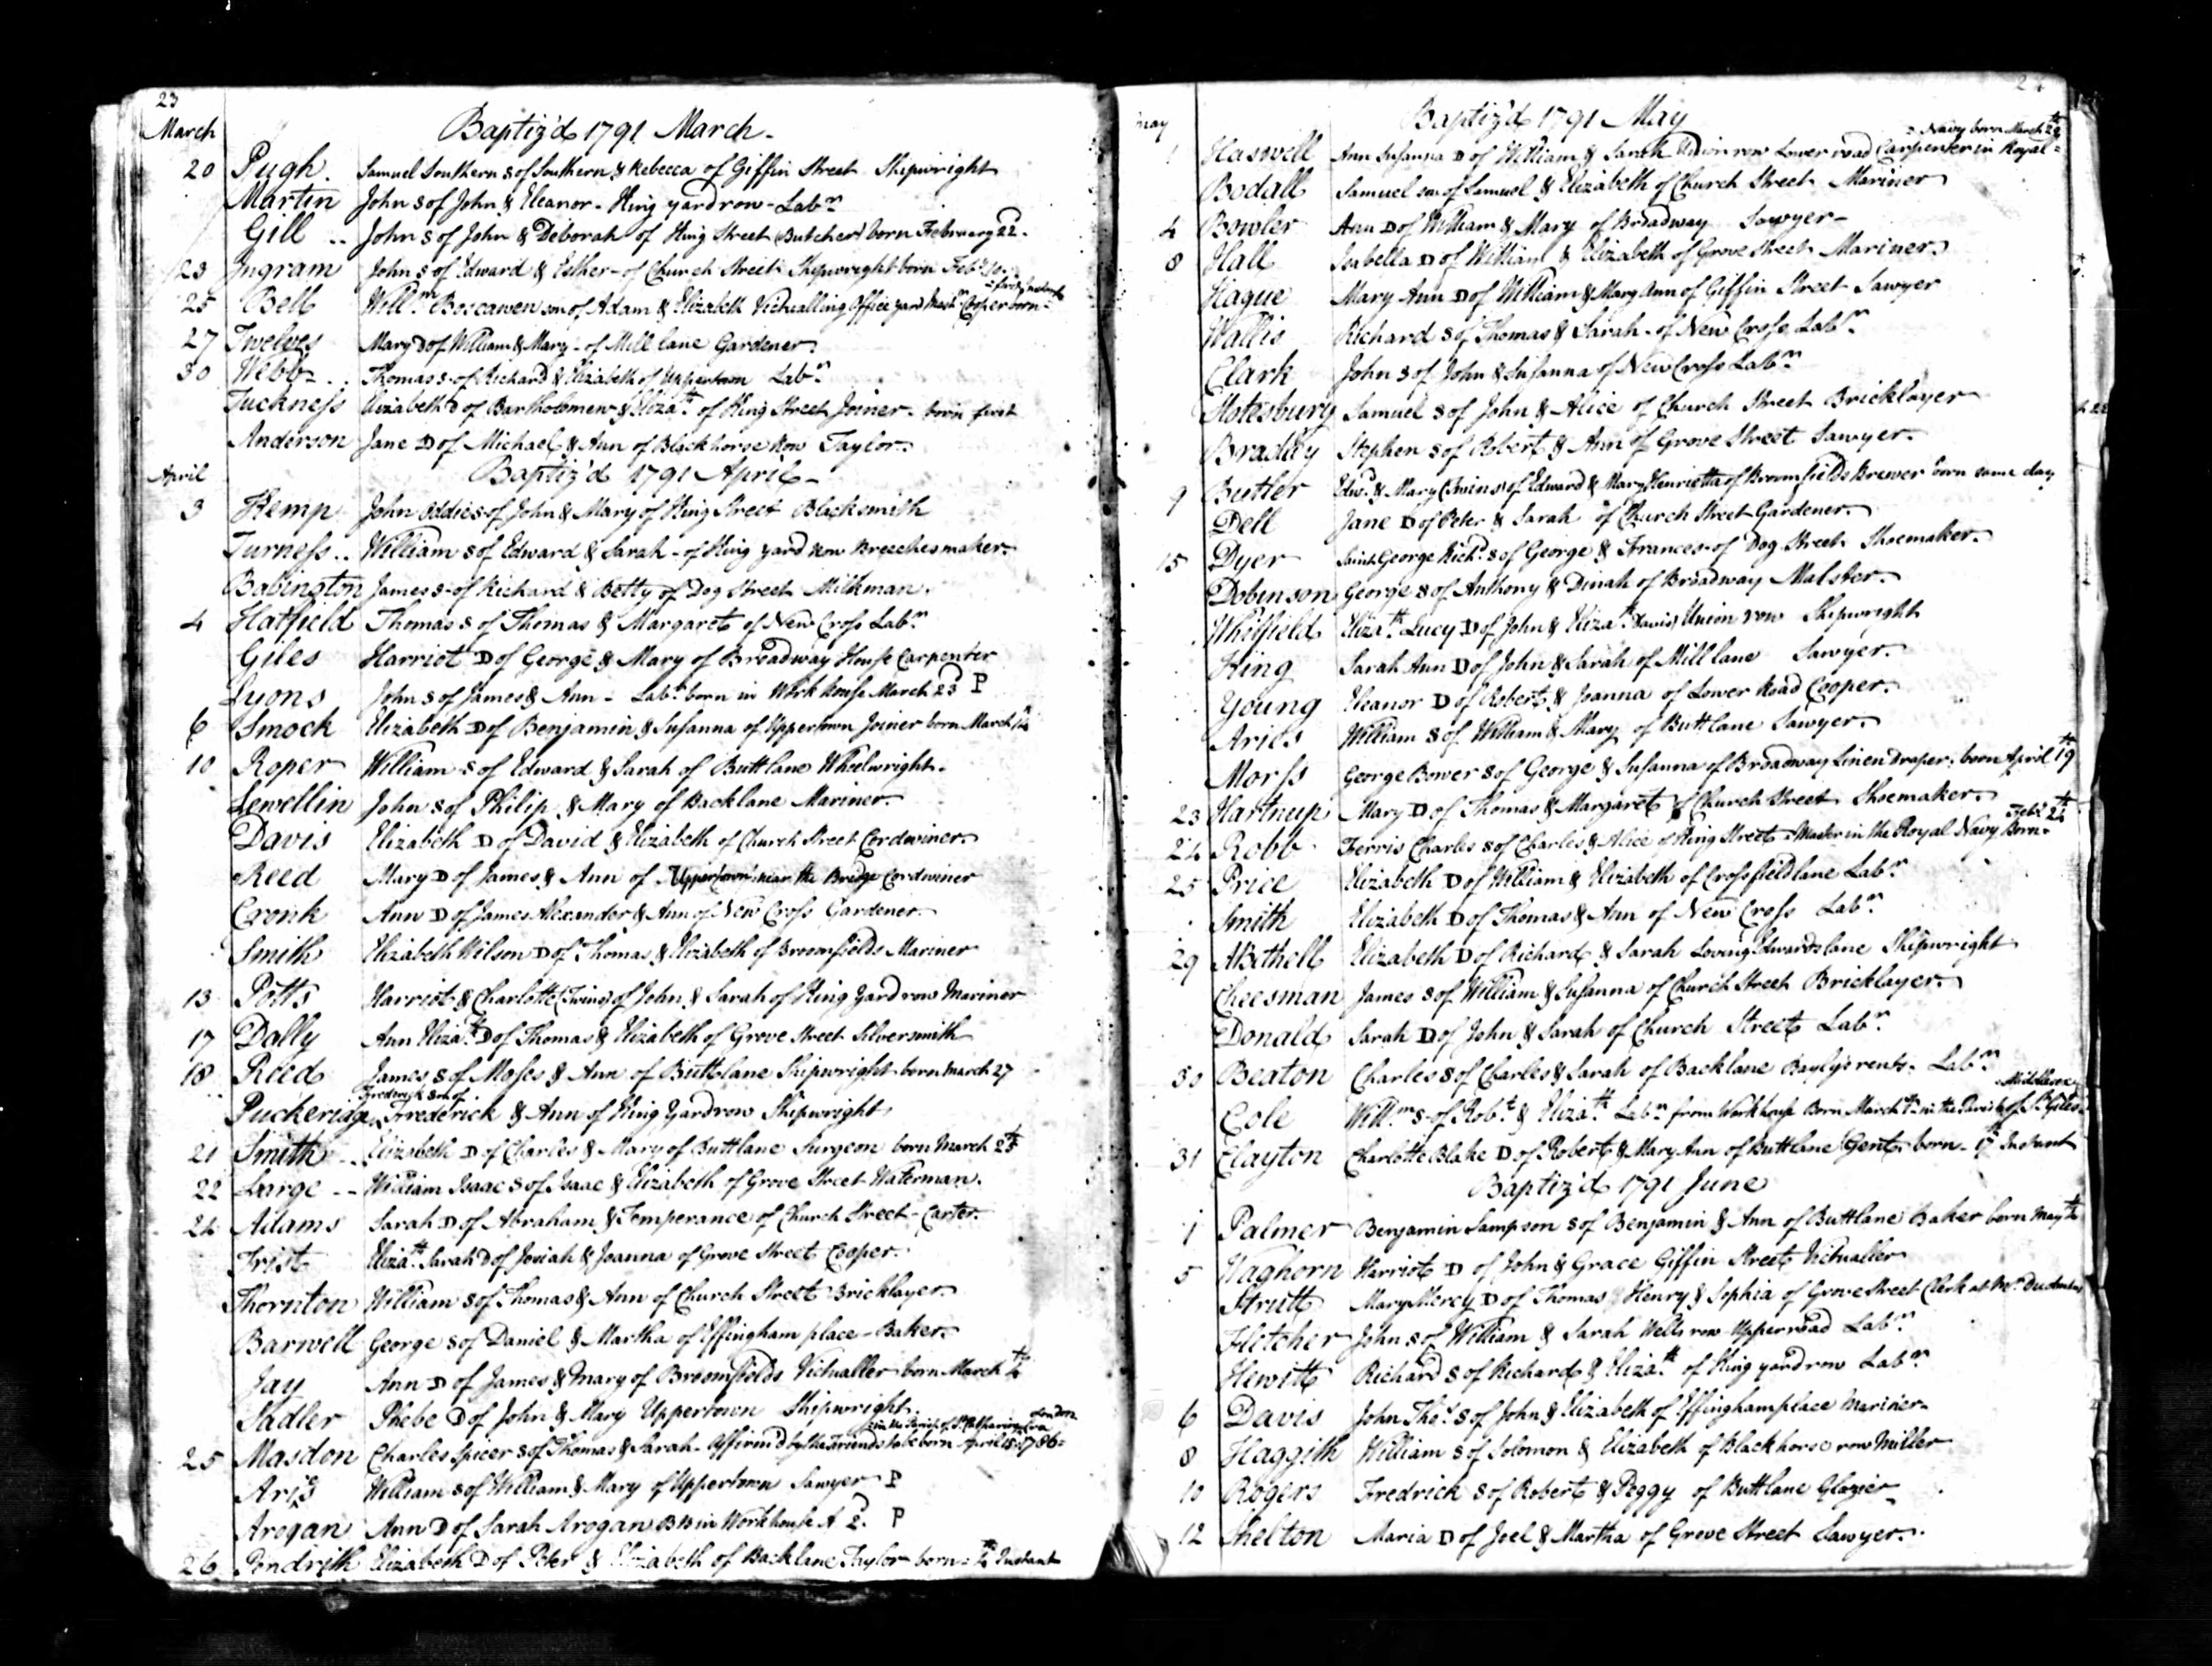 23
March Baptiz'd 1791 March
20 Pugh Samuel Southern s of Southern & Rebecca of Giffin Street Shipwright
Martin John s of John & Eleanor - King yard row - Labr
Gill .. John s of John & Deborah of King Street (Butcher) born February 22
23 Ingram John s of Edward & Esther - of Church Street Shipwright born Feb
25 Bell Willm Boscawen son of Adam & Elizabeth Victualling Office yard Cooper born
27 Twelves Mary D of William & Mary - of Mill lane Gardener
30 Webb Thomas s of Richard & Elizabeth of Uppertown Labr
Tuckness Elizabeth D of Bartholomew & Elizath of King Street Joiner born first
Anderson Jane D of Michael & Ann of Blackhorse Row Taylor
April Baptiz'd 1791 April
3 Kemp John Oddie s of John & Mary of King Street Blacksmith
Turness .. William s of Edward & Sarah - of King yard Row Breechesmaker
Babington James s of Richard & Betty of Dog Street Milkman
4 Hatfield Thomas s of Thomas & Margaret of New Cross Labr
Giles Harriot D of George & Mary of Broadway House Carpenter
Lyons John s of James & Ann - Labr born in Work house March 23 P
6 Smock Elizabeth D of Benjamin & Susanna of Uppertown Joiner born March
10 Roper William s of Edward & Sarah of Buttlane Wheelwright
Lewellin John s of Philip & Mary of Backlane Mariner
Davis Elizabeth D of David & Elizabeth of Church Street Cordwiner
Reed Mary D of James & Ann of Uppertown near the Bridge Cordwiner
Cronk Ann D of James Alexander & Ann of New Cross Gardener
Smith Elizabeth Wilson D of Thomas & Elizabeth of Broomfields Mariner
13 Potts Harriot & Charlotte (Twins) of John & Sarah of King Yard row Mariner
17 Dally Ann Elizath D of Thomas & Elizabeth of Grove Street Silversmith
18 Reed James s of Moses & Ann of Buttlane Shipwright born March 27
Frederick son of
Puckeridge Frederick & Ann of King Yardrow Shipwright
21 Smith Elizabeth D of Charles & Mary of Buttlane Surgeon born March 25th
22 Large -- William Isaac s of Isaac & Elizabeth of Grove Street Waterman
24 Adams Sarah D of Abraham & Temperance of Church Street - Carter
Frist Elizath Sarah D of Josiah & Joanna of Grove Street Cooper
Thornton William s of Thomas & Ann of Church Street Bricklayer
Barwell George s of Daniel & Martha of Effingham place - Baker
Jay Ann D of James & Mary of Broomfields Victualler born March
Sadler Phebe D of John & Mary Uppertown Shipwright
London
in the Parish of St Katharine
25 Masdon Charles Spicer s of Thomas & Sarah - Affirm'd by the Friends to be born April 15 1786
Aris William s of William & Mary of Uppertown Sawyer P
Arogan Ann D of Sarah Arogan BB in Workhouse A 2 P
26 Pendrith Elizabeth D of Peter & Elizabeth of Backlane Taylor born Instant
24
May Baptiz'd 1791 May
Navy born March
1 Haswell Ann Susanna D of William & Sarah Union row Lower road Carpenter in Royal
Bodall Samuel son of Samuel & Elizabeth of Church Street Mariner
4 Bowler Ann D of William & Mary of Broadway Sawyer
8 Hall Isabella D of William & Elizabeth of Grove Street Mariner
Hague Mary Ann D of William & Mary Ann of Giffin Street Sawyer
Wallis Richard s of Thomas & Sarah of New Cross Labr
Clark John s of John & Susanna of New Cross Labr
Stotesbury Samuel s of John & Alice of Church Street Bricklayer
Bradley Stephen s of Robert & Ann of Grove Street Sawyer
9 Butler Edwd & Mary (Twins) of Edward & Mary Henrietta of Broomfields Brewer born same day
Dell Jane D of Peter & Sarah of Church Street Gardener
15 Dyer Saint George Richd s of George & Frances of Dog Street Shoemaker
Dobinson George s of Anthony & Dinah of Broadway Malster
Whitfield Elizath Lucy D of John & Elizath Davis Union row Shipwright
King Sarah Ann D of John & Sarah of Mill lane Sawyer
Young Eleanor D of Robert & Joanna of Lower Road Cooper
Aries William s of William & Mary of Buttlane Sawyer
Morss George Bower s of George & Susanna of Broadway Linen draper born April 19th
23 Hartnup Mary D of Thomas & Margaret of Church Street Shoemaker
24 Robb Ferris Charles s of Charles & Alice of King Street Master in the Royal Navy Born Feby
25 Price Elizabeth D of William & Elizabeth of Crossfieldlane Labr
Smith Elizabeth D of Thomas & Ann of New Cross Labr
29 Abethell Elizabeth D of Richard & Sarah Loving Edwards lane Shipwright
Cheesman James s of William & Susanna of Church Street Bricklayer
Donald Sarah D of John & Sarah of Church Street Labr
30 Beaton Charles s of Charles & Sarah of Backlane Baylys rents Labr
Middlesex
Cole Willm s of Robt & Elizath Labr from Workhouse Born March in the Parish of St Giles
31 Clayton Charlotte Blake D of Robert & Mary Ann of Buttlane Gent born 17th Instant
Baptiz'd 1791 June
1 Palmer Benjamin Sampson s of Benjamin & Ann of Buttlane Baker born May
5 Waghorn Harriot D of John & Grace Giffin Street Victualler
Strutt Mary Mercy D of Thomas Henry & Sophia of Grove Street Clerk at Mr Dudmans
Fletcher John s of William & Sarah Wells row Upper road Labr
Hewitt Richard s of Richard & Elizath of King yard row Labr
6 Davis John Thos s of John & Elizabeth of Effinghamplace Mariner
8 Haggith William s of Solomon & Elizabeth of Blackhorse row Miller
10 Rogers Fredrick s of Robert & Peggy of Buttlane Glazier
12 Shelton Maria D of Joel & Martha of Grove Street Sawyer